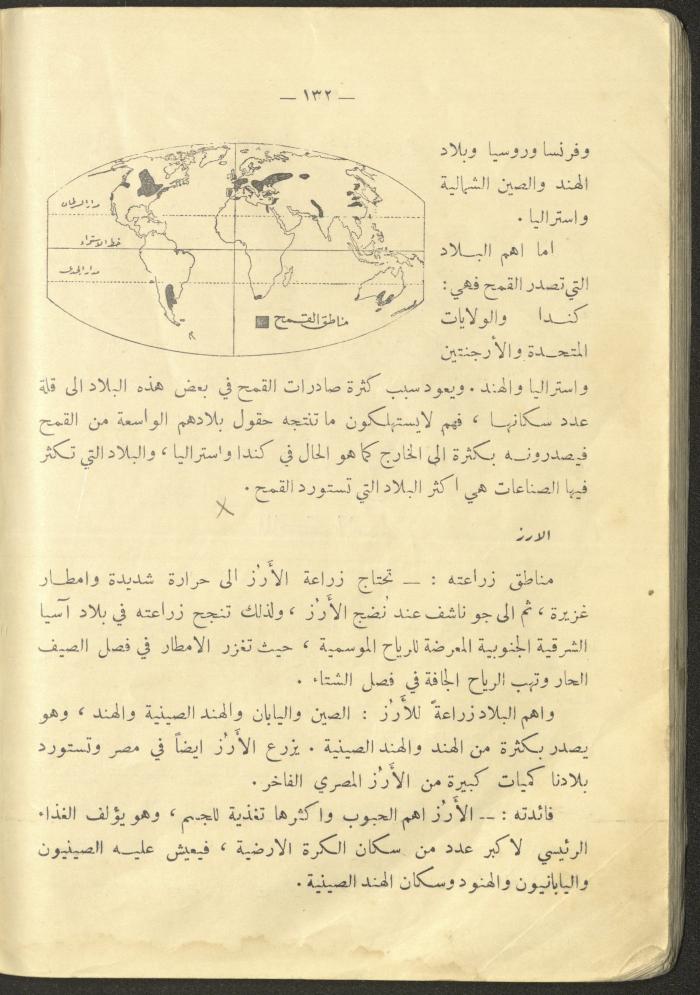 — ١٣٢ —
وفرنسا وروسيا وبلاد
الهند والصين الشمالية
واستراليا .
اما اهم البـلاد
التي تصدر القمح فهي :
كنـدا والولايات
المتحـدة والأرجنتين
مدار السرطان
خط الاستواء
مدار الجدي
مناطق القـمح
واستراليا والهند . ويعود سبب كثرة صادرات القمح في بعض هذه البلاد الى قلة
عدد سكانهـا ، فهم لايستهلكون ما تنتجه حقول بلادهم الواسعة من القمح
فيصدرونـه بكثرة الى الخارج كما هو الحال في كندا واستراليا ، والبلاد التي تكثر
فيها الصناعات هي اكثر البلاد التي تستورد القمح .
الارز
مناطق زراعته : — تحتاج زراعة الأَرُز الى حرارة شديدة وامطـار
غزيرة ، ثم الى جو ناشف عند نُضج الأَرُز ، ولذلك تنجح زراعته في بلاد آسيا
الشرقية الجنوبية المعرضة للرياح الموسمية ، حيث تغزر الامطار في فصل الصيف
الحار وتهب الرياح الجافة في فصل الشتاء .
واهم البلاد زراعةً للأَرُز : الصين واليابان والهند الصينية والهند ، وهو
يصدر بكثرة من الهند والهند الصينية . يزرع الأَرُز ايضاً في مصر وتستورد
بلادنا كميات كبيرة من الأَرُز المصري الفاخر .
فائدته : — الأَرُز اهم الحبوب واكثرها تغذية للجسم ، وهو يؤلف الغذاء
الرئيسي لاكبر عدد من سكان الكرة الارضية ، فيعيش عليـه الصينيون
واليابانيون والهنود وسكان الهند الصينية .